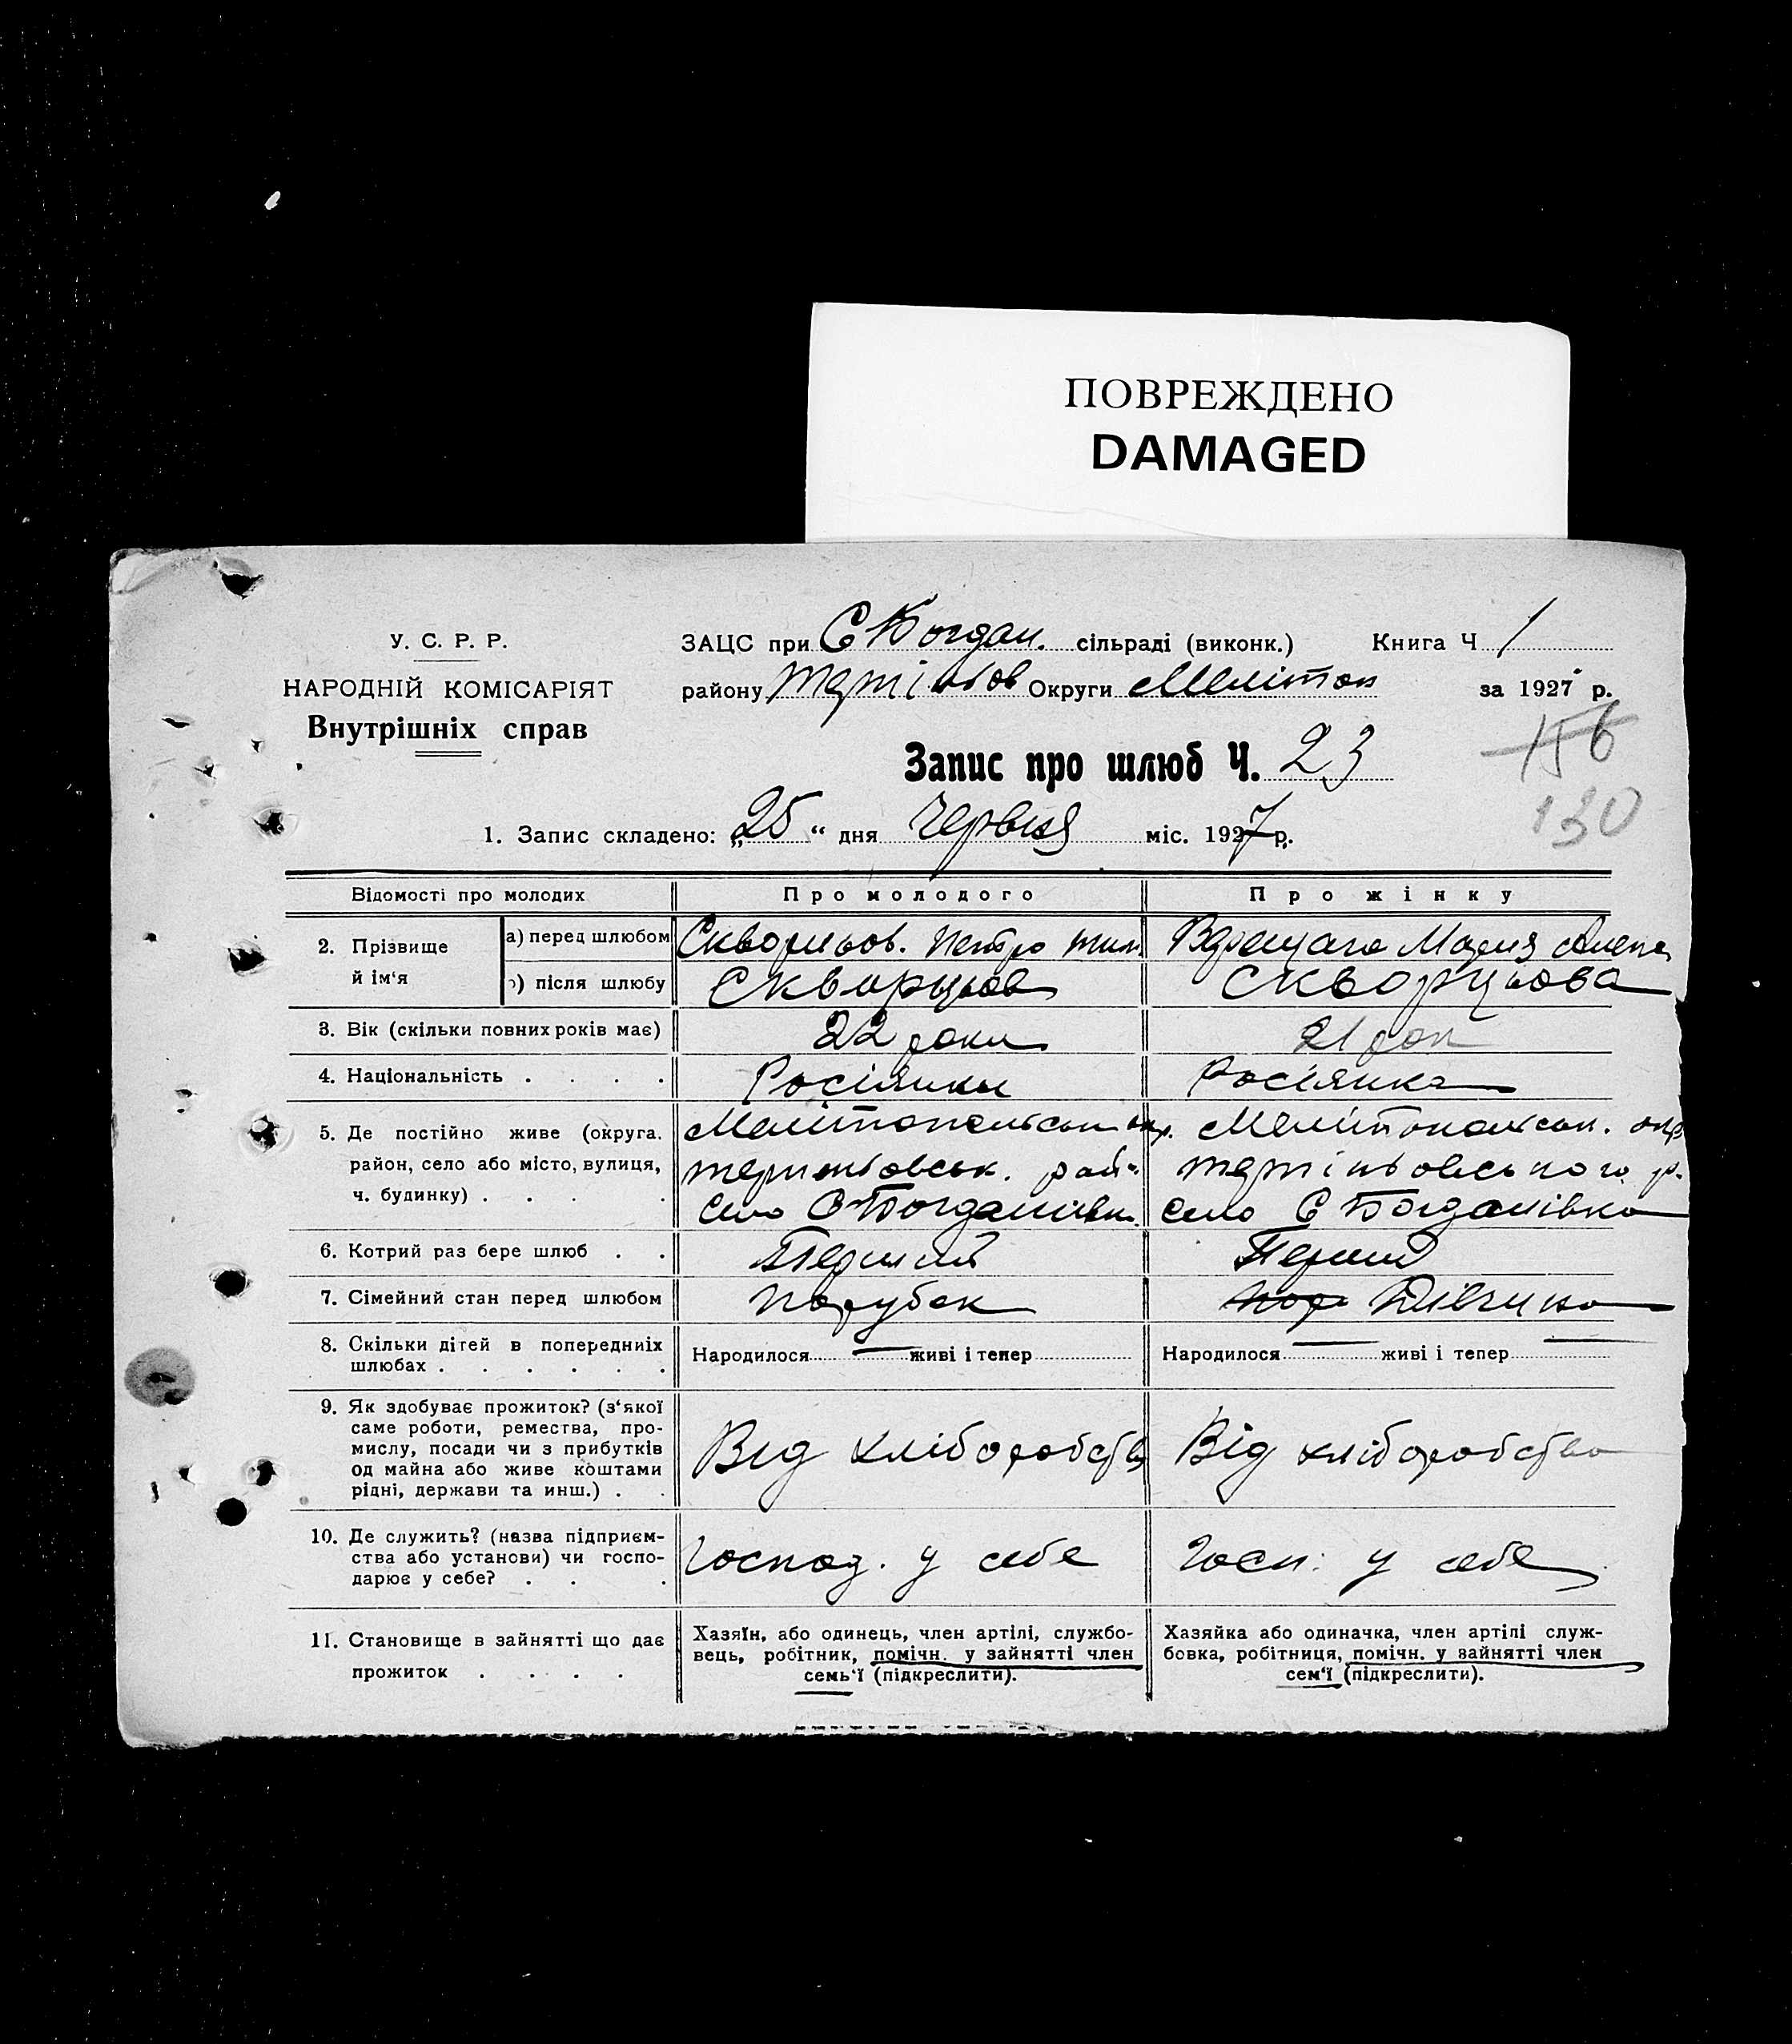 ПОВРЕЖДЕНО
DAMAGED
У. С. Р. Р.
НАРОДНІЙ КОМІСАРІЯТ
Внутрішніх справ
ЗАЦС при С Богдан. сільраді (виконк.) Книга Ч 1
району Терпіньов Округи Меліtоп за 1927 р.
156
130
Запис про шлюб Ч. 23
1. Запис складено: „25“ дня червня міс. 1927 р.
Відомості про молодих Про молодого Про жінку
2. Прізвище й ім‘я
а) перед шлюбом Скворцьов. Петро Тим Мария
) після шлюбу Скворцьов Скворцьова
3. Вік (скільки повних років має) 22 роки 21 рок
4. Національність . . . . Росіянин Росіянка
5. Де постійно живе (округа, район, село або місто, вулиця, ч. будинку) . . . .
Мелітопольськ окр. Мелітопольськ. окр
терпіньовськ. рай терпіньовського р.
село С Богданівка село С Богданівка
6. Котрий раз бере шлюб . . Перший Перший
7. Сімейний стан перед шлюбом Парубок пар Дівчина
8. Скільки дітей в попередниіх шлюбах . . . . . . Народилося — живі і тепер Народилося — живі і тепер —
9. Як здобуває прожиток? (з‘якої
саме роботи, ремества, про-
мислу, посади чи з прибутків
од майна або живе коштами
рідні, держави та инш.) . .
Від хліборобства Від хліборобства
10. Де служить? (назва підприєм-
ства або установи) чи госпо-
дарює у себе? . . .
Господ. у себе Госп. у себе
11. Становище в зайнятті що дає
прожиток . . . . .
Хазяїн, або одинець, член артілі, службо-
вець, робітник, помічн. у зайнятті член
семь‘ї (підкреслити).
Хазяйка або одиначка, член артілі служ-
бовка, робітниця, помічн. у зайнятті член
сем‘ї (підкреслити).